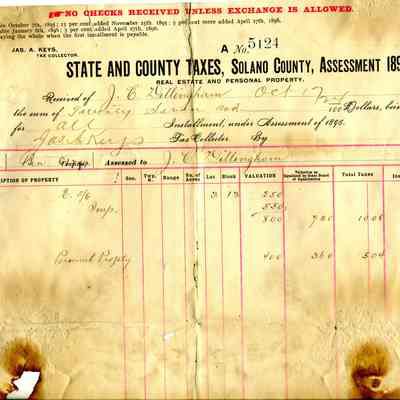 NO CHECKS RECEIVED UNLESS EXCHANGE IS ALLOWED.
October 7th, 1895; 15 per cent added November 25th, 1895; 5 per cent more added April 27th, 1896.
able January 6th, 1896; 5 per cent added April 27th, 1896.
paying the whole when the first installment is payable.
JAS. A. KEYS,
TAX COLLECTOR.
A No. 5124
STATE AND COUNTY TAXES, SOLANO COUNTY, ASSESSMENT 189
REAL ESTATE AND PERSONAL PROPERTY.
Received of J. C. Dillingham Oct 17
the sum of Seven 100 Dollars, bein
for all Installment, under Assessment of 1895.
Jas A Keys Tax Collector By
Ben Assessed to J. C. Dillingham
IPTION OF PROPERTY Sec. Twp. N. Range No. of Acres Lot Block VALUATION Valuation as Equalized by State Board of Equalization Total Taxes
E. 5/6 3 13 250
Imp. 550
800 720 10 08
Personal Property 400 360 5 04